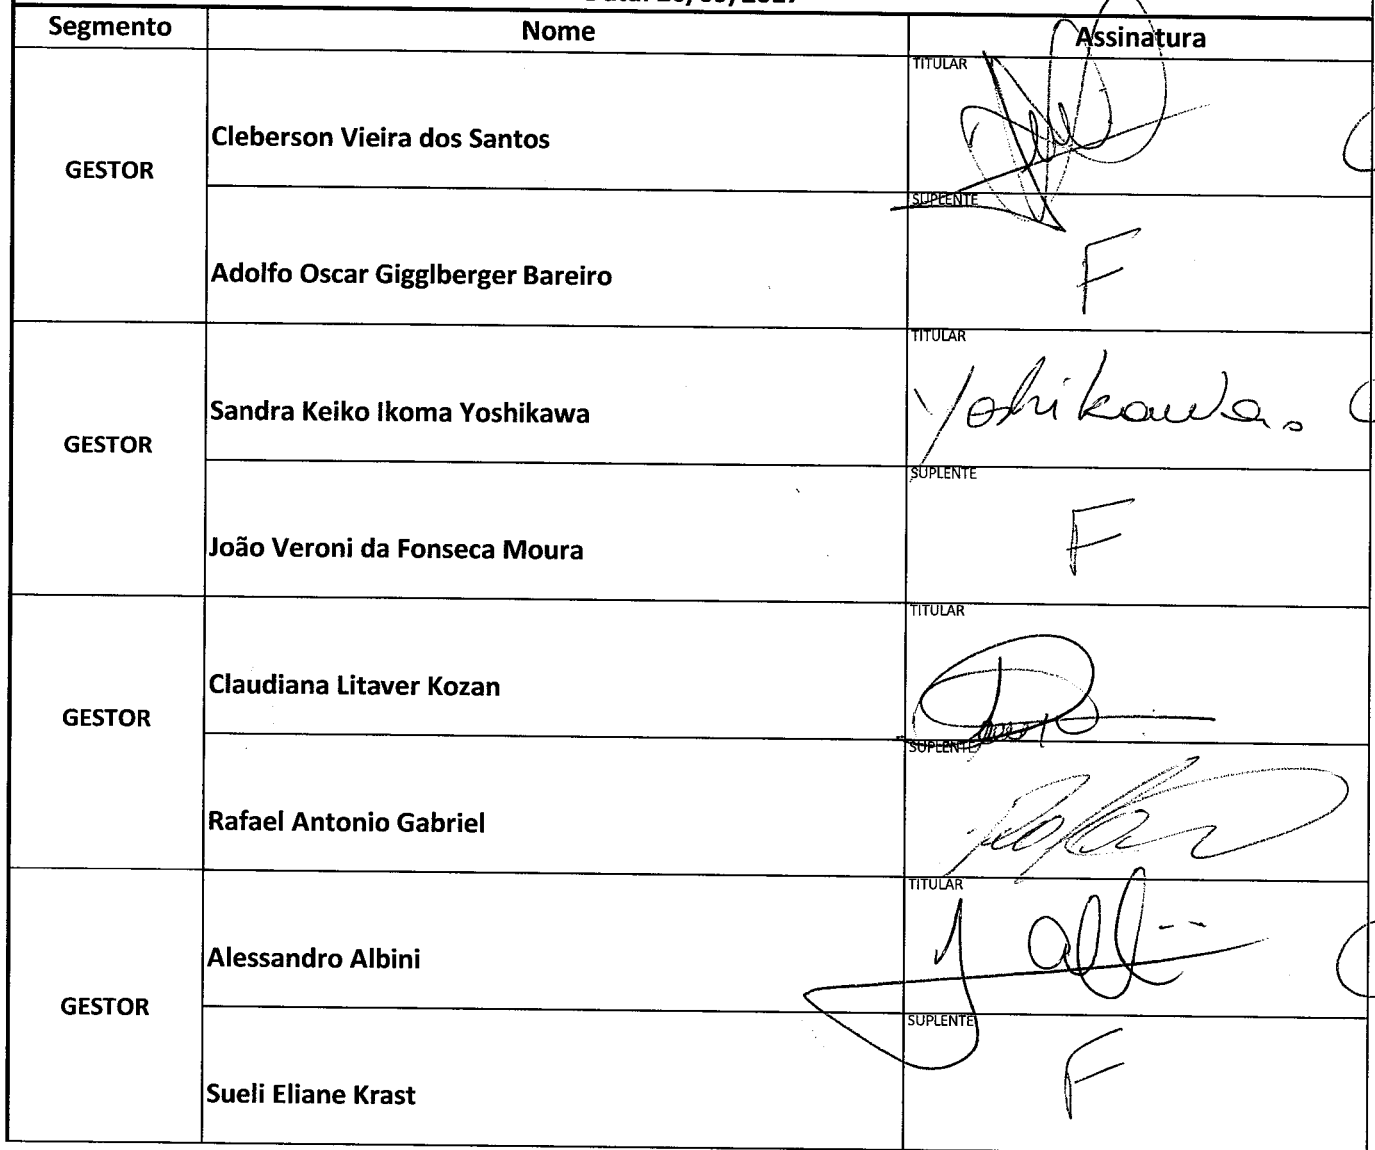 Segmento Nome Assinatura
GESTOR
Cleberson Vieira dos Santos
TITULAR
Adolfo Oscar Gigglberger Bareiro
SUPLENTE
F
GESTOR
Sandra Keiko Ikoma Yoshikawa
TITULAR
Yoshikawa.
João Veroni da Fonseca Moura
SUPLENTE
F
GESTOR
Claudiana Litaver Kozan
TITULAR
Rafael Antonio Gabriel
SUPLENTE
GESTOR
Alessandro Albini
TITULAR
Sueli Eliane Krast
SUPLENTE
F